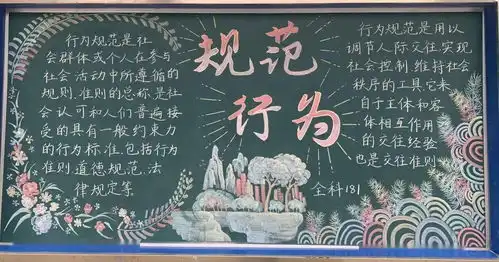 规范
行为
行为规范是社
会群体或个人在参与
社会活动中所遵循的
规则、准则的总称,是社
会认可和人们普遍接
受的具有一般约束力
的行为标准。包括行为
准则、道德规范、法
律规定等
行为规范是用以
调节人际交往,实现
社会控制,维持社会
秩序的工具,它来
自于主体和客
体相互作用
的交往经验
也是交往准则
全科181